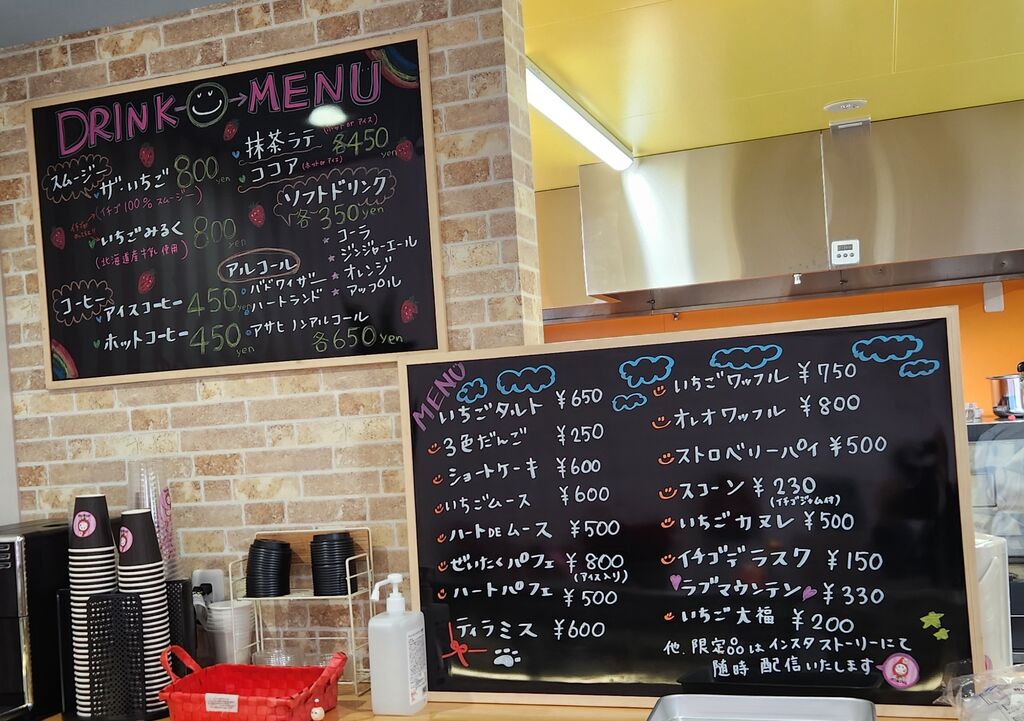 DRINK→MENU
スムージー
ザ・いちご 800 yen
(イチゴ100%スムージー)
いちごみるく 800 yen
(北海道産牛乳使用)
コーヒー
アイスコーヒー 450 yen
ホットコーヒー 450 yen
抹茶ラテ (ホット or アイス)
ココア (ホット or アイス)
各450
ソフトドリンク
各350yen
コーラ
ジンジャーエール
オレンジ
アップル
アルコール
バドワイザー
ハートランド
アサヒ ノンアルコール
各650yen
MENU
いちごタルト ¥650
3色だんご ¥250
ショートケーキ ¥600
いちごムース ¥600
ハートDEムース ¥500
ぜいたくパフェ ¥800
(アイス入り)
ハートパフェ ¥500
ティラミス ¥600
いちごワッフル ¥750
オレオワッフル ¥800
ストロベリーパイ ¥500
スコーン ¥230
(イチゴジャム付)
いちごカヌレ ¥500
イチゴデラスク ¥150
ラブマウンテン ¥330
いちご大福 ¥200
他、限定品はインスタストーリーにて
随時 配信いたします